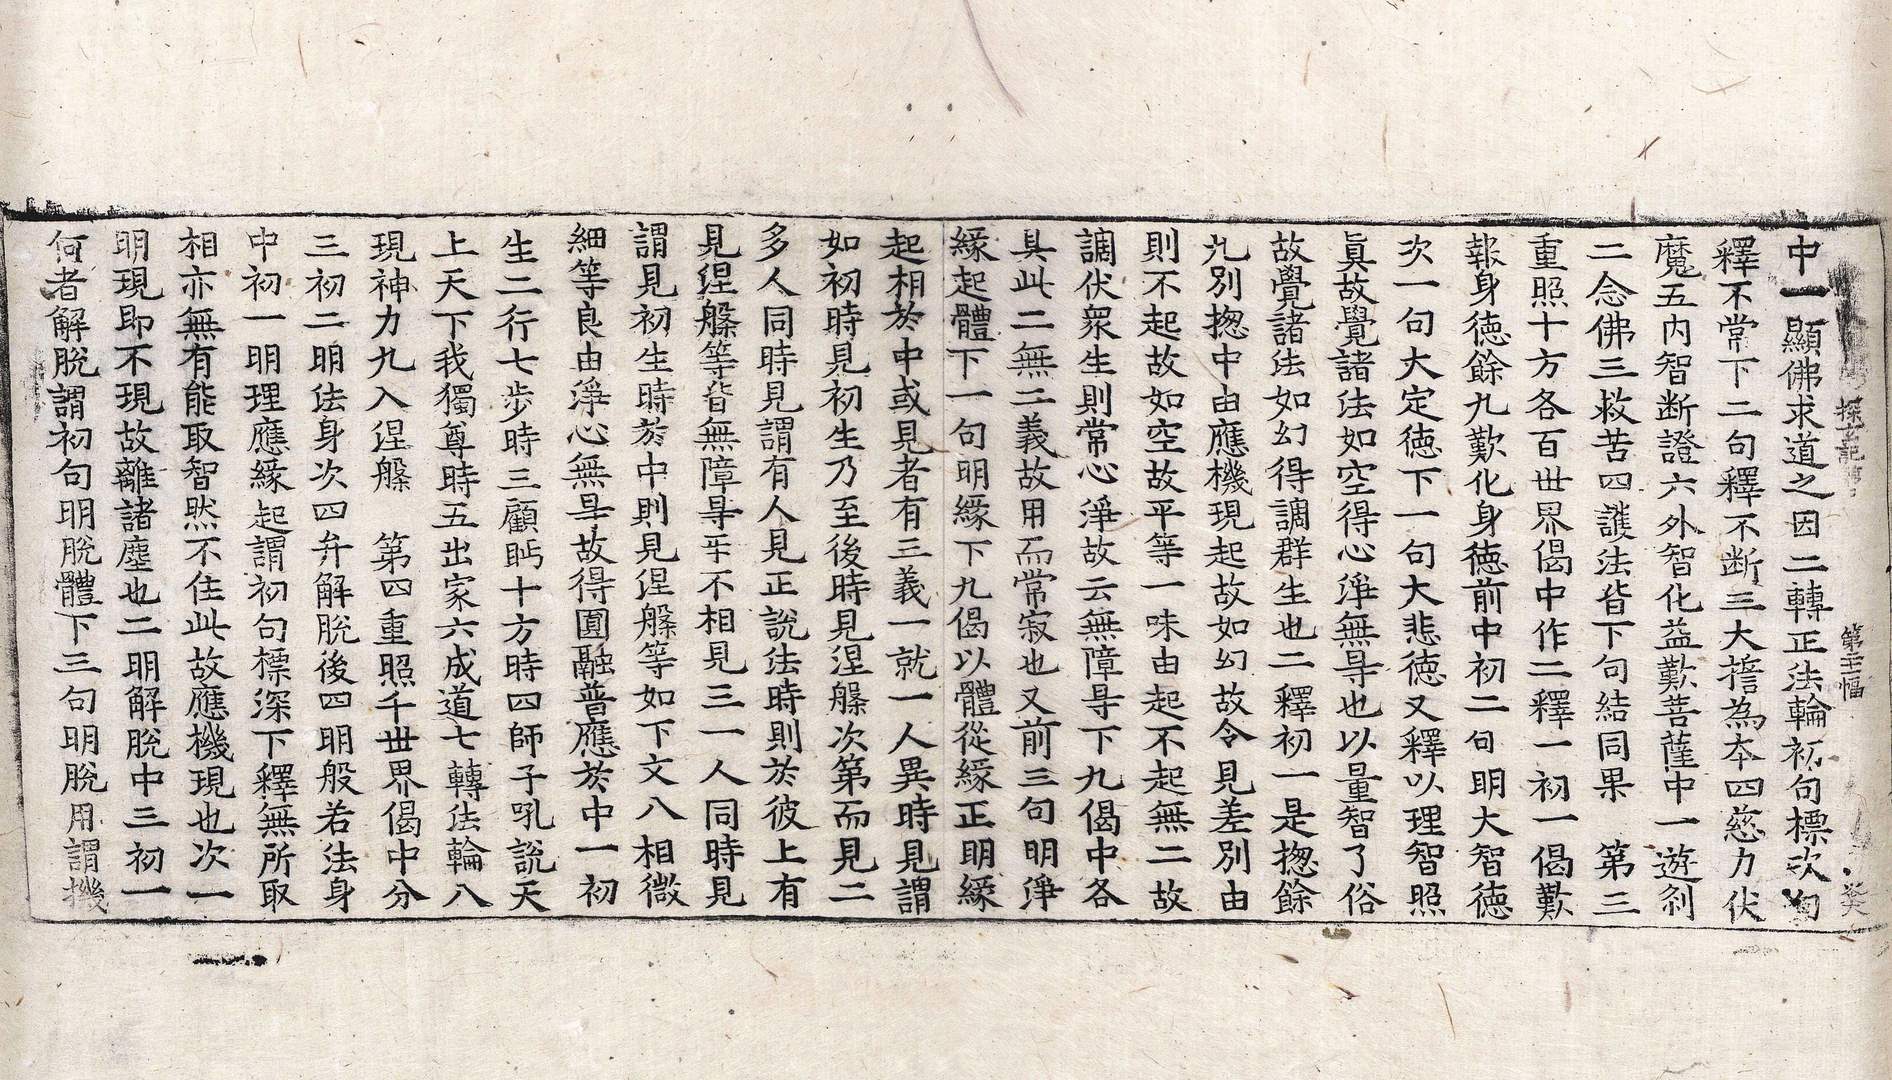 中一顯佛求道之因二轉正法輪初句標次句
釋不常下二句釋不斷三大擔為本四慈力伏
魔五內智斷證六外智化益歎善薩中一遊刹
二念佛三救苦四護法皆下句結同果　第三
重照十方各百世界偈中作二釋一初一偈歎
報身德餘九歎化身德前中初二句明大智德
次一句大定德下一句大悲德又釋以理智照
真故覺諸法如空得心淨無㝵也以量智了俗
故覺諸法如幻得調群生也二釋初一是揔餘
九別揔中由應機現起故如幻故令見差別由
則不起故如空故平等一味由起不起無二故
謂伏衆生則常心淨故云無障㝵下九偈中各
具此二無二義故用而常寂也又前三句明淨
緣起體下一句明緣下九偈以體從緣正明緣
起相於中或見者有三義一就一人異時見謂
如初時見初生乃至後時見涅槃次第而見二
多人同時見謂有人見正說法時則於彼上有
見涅槃等皆無障㝵平不相見三一人同時見
謂見初生時於中則見涅槃等如下文八相微
細等良由淨心無㝵故得圓融普應於中一初
生二行七步時三顧眄十方時四師子吼說天
上天下我獨尊時五出家六成道七轉法輪八
現神力九入涅槃　第四重照千世界偈中分
三初二明法身次四弁解脫後四明般若法身
中初一明理應緣起謂初句標深下釋無所取
相亦無有能取智然不住此故應機現也次一
明現即不現故離諸塵也二明解脫中三初一
何者解脫謂初句明脫體下三句明脫用謂機